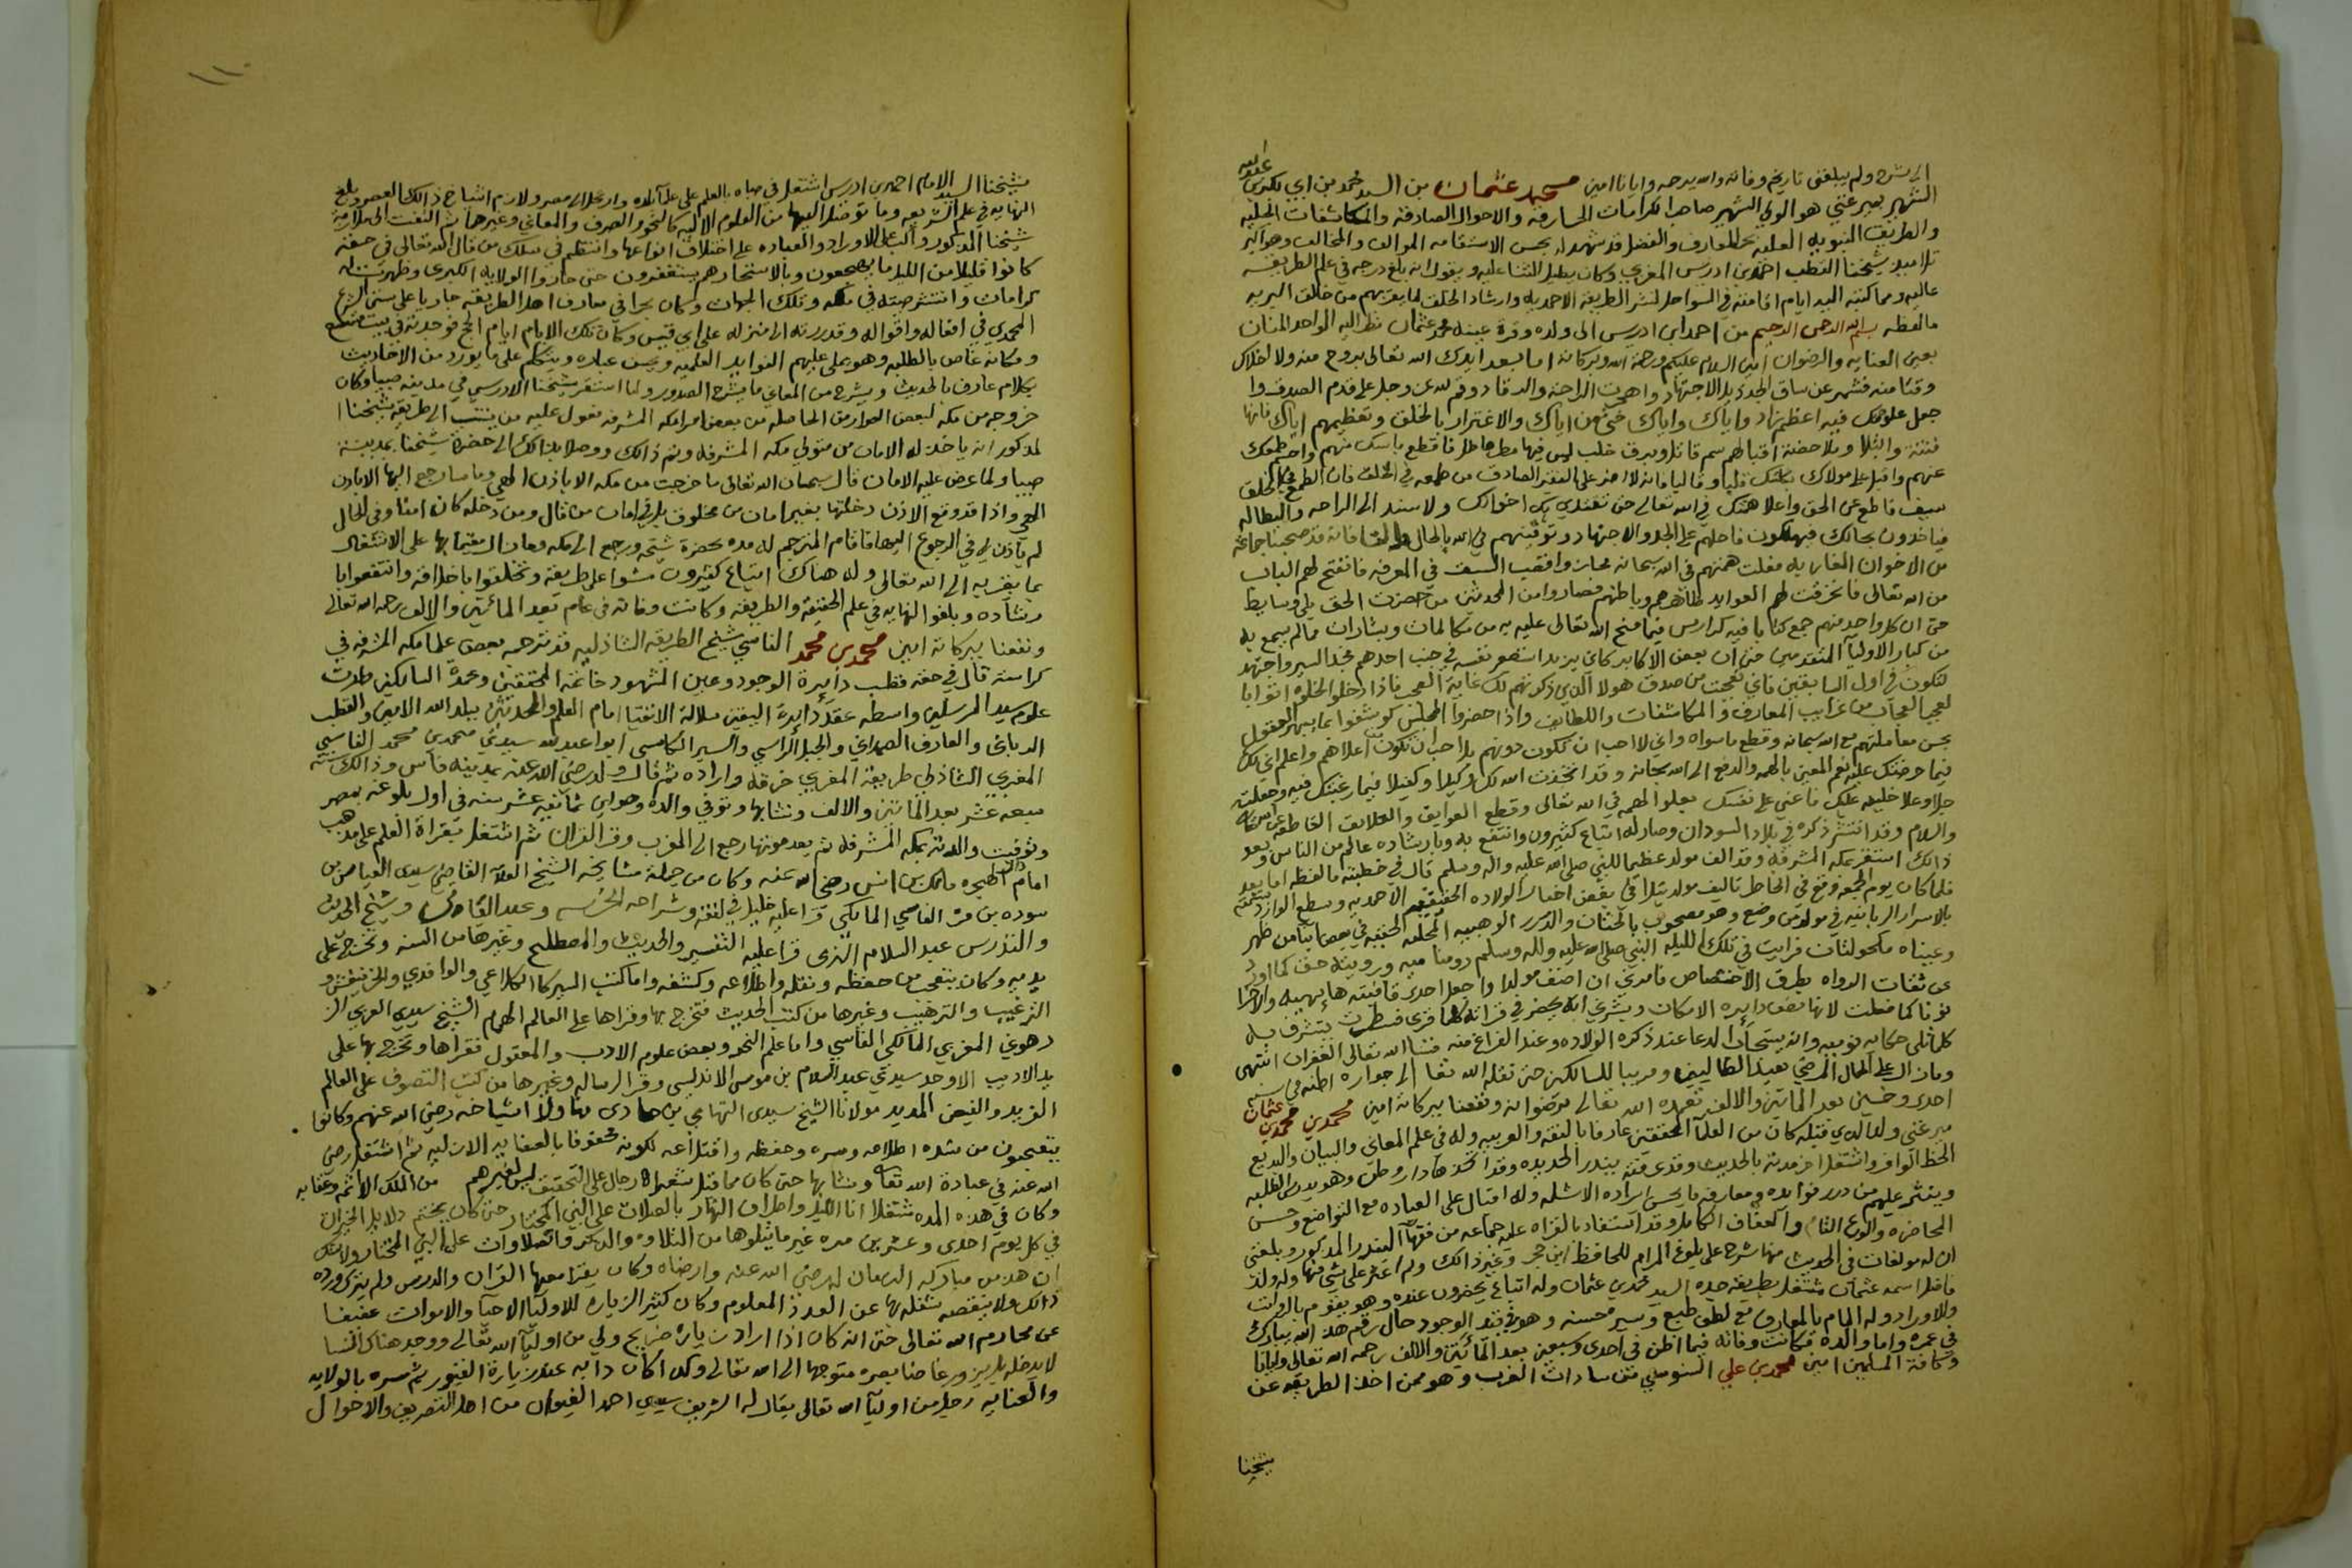 الى شرح ولم يبلغنى تاريخ وفاته والله يرحمه وايانا امين محمد عثمان بن السيد محمد بن ابي بكر بن عبدالله
الشهير بميرغني هو الولي الشهير صاحب الكرامات الخارقه والاحوال الصادقه والمكاشفات الجليه
والطريقه النبويه العليه بحر المعارف والفضل قد شهد له بحسن الاستقامه الموالف والمخالف وهو اكبر
تلاميذ شيخنا القطب احمد بن ادريس المغربي وكان يطيل الثنا عليه ويقول انه بلغ درجه في علم الطريقه
عاليه ومما كتبه اليه ايام اقامته في السواحل لنشر الطريقه الاحمديه وارشاد الخلق لما يقربهم من خالق البريه
ما لفظه بسم الله الرحمن الرحيم من احمد ابن ادريس الى ولده وقرة عينه محمد عثمان نظر اليه الواحد المنان
بعين العنايه والرضوان امين السلام عليكم ورحمة الله وبركاته اما بعد ايدك الله تعالى بروح منه ولا اخلاك
وقتا منه فشمر عن ساق الجد بيد الاجتهاد واهجر الراحه والرقاد وقم لله عز وجل على قدم الصدق وا
جعل علو همتك فيه اعظم زاد واياك واياك حتى من اياك والاغترار بالخلق وتعظيمهم اياك فانها
فتنة وابتلا وملاحضة اقبالهم سم قاتل وبرق خلب ليس فيها مطر هاطل فاقطع ياسك منهم واحسم طمعك
عنهم واقبل على مولاك بكلك قلبا وقالبا فانه لا اضر على الفقير الصادق من طمعه في الخلق فان الطمع في الخلق
سيف قاطع عن الحق واعلا همتك في الله تعالى حتى تقتدي بك اخوانك ولا تستند الى الراحه والبطاله
فياخذون بحالك فيهلكون فاحملهم على الجد والاجتهاد وتوقيتهم في الله بالحال والمقال فانه قد صحبنا جماعة
من الاخوان المغاربه فعلت همتهم في الله سبحانه
من الله تعالى فانخرقت لهم العوايد ظاهرهم وباطنهم فصاروا من المحدثين من حضرت الحق بلا وسايط
حتى ان كل واحد منهم جمع كتابا فيه كراريس فيما منح الله تعالى عليه به من مكالمات وبشارات مالم يسمع به
من كبار الاوليا المتقدمين حتى ان بعض الاكابر كان يزيد استضع نفسه في جنب احدهم فجد السير واجتهد
لتكون في اول السابقين فاني تعجبت من صدق هولا الذي ذكرتهم لك غاية العجب فاذا دخلوا الخلوه اتوا با
لعجب العجاب من غرايب المعارف والمكاشفات واللطايف واذا حضروا المجلس كوشفوا بما يبهر العقول
بحسن معاملتهم مع الله سبحانه وقطع ماسواه واني لا احب ان تكون دونهم بل احب ان تكون اعلاهم واعلم اني لك
فيما حرضتك عليه نعم المعين بالهمه والدفع الى الله سبحانه وقد اتخذت الله لك وكيلا وكفيلا فيما رغبتك فيه وجعلته
جل وعلا خليفه عليك فاعني على نفسك بعلو الهمه في الله تعالى وقطع العوايق والعلايق القاطعه عن الله تعالى
والسلام وقد انتشر ذكره في بلاد السودان وصار له اتباع كثيرون وانتفع به وبارشاده عالم من الناس وبعد
ذالك استقر بمكه المشرفه وقد الف مولد عظيما للنبي صلى الله عليه واله وسلم قال في خطبته ما لفظه اما بعد
فلما كان يوم الجمعه وقع في الخاطر تاليف مولد
بالاسرار الربانيه
وعيناه مكحولتان فرايت في تلك الليله النبي صلى الله عليه واله وسلم
عن ثقات الرواه بطرق الاختصاص فامرني ان اصنف مولدا واجعل احدى قافيته ها بهيه والاخرا
نونا كما فعلت لانها نصف دايرة الامكان وبشرني انه يحضر في قرآته كلما قري فسطرت ليتشرف به
كلما تلى حكايه نوميه وانه يستجاب الدعا عند ذكره الولاده وعند الفراغ منه فنسا الله تعالى الغفران انتهى
وما زال على الحال المرضي مفيدا لطالبين ومربيا للسالكين حتى نقله الله تعا الى جواره اظنه في سنة
احدى وخمسين بعد المائتين والالف تغمده الله تعالى برضوانه ونفعنا ببركاته امين محمد بن محمد بن عثمان
ميرغني ولد الذي قبله كان من العلما المحققين عارفا بالفقه والعربيه وله في علم المعاني والبيان والبديع
الحظ الوافر واشتغل اخر مدته بالحديث وقد عرفته ببندر الحديده وقد اتخذها دار وطن وهو يدرس الطلبه
وينثر عليهم من درر فوائده ومعارفه ما يحسن ايراده الاشله وله اقبال على العباده مع التواضع وحسن
المحاضره والورع التام والعفاف الكامل وقد استفاد بالقراه عليه جماعه من فقها البندر المذكور وبلغني
ان له مولفات في الحديث منها شرح على بلوغ المرام للحافظ ابن حجر وغير ذالك ولم اعثر على شي منها وله ولد
فاضل اسمه عثمان مشتغل بطريقة جده السيد محمد بن عثمان وله اتباع يحضرون عنده وهو يقوم بالرواتب
والاوراد وله المام بالمعارف مع لطف طبع وسير حسنه وهو في قيد الوجود حال رقم هذه الله يبارك
في عمره واما والده فكانت وفاته فيما اظن في احدى وسبعين بعد المائتين والالف رحمه الله تعالى وايانا
وكافة المسلمين امين محمد بن علي السنوسي من سادات الغرب وهو ممن اخذ الطريقه عن
شيخنا
١١٠
شيخنا السيد الامام احمد بن ادريس اشتغل في صباه بالعلم على علماء بلده وارتحل الى مصر ولازم اشياخ ذالك العصر وبلغ
النهايه في علم الشريعه وما توصل اليها من العلوم الاليه كالنحو والصرف والمعاني وغيرها ثم التفت الى ملازمة
شيخنا المذكور واكب على الاوراد والعباده على اختلاف انواعها وانتظم في سلك من قال الله تعالى في حقه
كانوا قليلا من الليل ما يهجعون وبالاسحار هم يستغفرون حتى حاز الولايه الكبرى وظهرت له
كرامات وانتشر صيته في مكه وتلك الجهات وكان بحرا في معارف اهل الطريقه جاريا على سنن الشرع
المحمدي في افعاله واقواله وقد زرته الى منزله على ابي قبيس وكان تلك الايام ايام الحج فوجدته في بيت
ومكانه غاص بالطلبه وهو يملي عليهم الفوايد العلميه ويحسن عباره ويتكلم على ما يورد من الاحاديث
بكلام عارف بالحديث ويشرح من المعاني ما يشرح الصدور ولما استقر شيخنا الادريسي في مدينه صبيا وكان
خروجه من مكه لبعض العوارض الحاصله من بعض امرا مكه المشرفه
لمذكور انه ياخذ له الامان من متولي مكه المشرفه وتم ذالك ووصل بذالك الى حضرة شيخنا بمدينة
صبيا ولما عرض عليه الامان قال سبحان الله تعالى ما خرجت من مكه الا باذن الهي وما سارجع اليها الا باذن
الهي واذا قد وقع الاذن دخلتها بغير امان من مخلوف بل في امان من قال ومن دخله كان امنا وفي الحال
لم ياذن لي في الرجوع اليها فاقام المترجم له مده بحضرة شيخه ورجع الى مكه وما زال مقيما بها على الاشتغال
بما يقربه الى الله تعالى وله هناك اتباع كثيرون مشوا على طريقته وتخلقوا باخلاقه وانتفعوا با
رشاده وبلغوا النهايه في علم الحقيقه والطريقه وكانت وفاته في عام بعد المائتين والالف رحمه الله تعالى
ونفعنا ببركاته امين محمد بن محمد الفاسي شيخ الطريقه الشاذليه قد ترجمه بعض علما مكه المشرفه في
كراسة قال في حقه قطب دائرة الوجود وعين الشهود خاتمة المحققين وعمدة السالكين وارث
علوم سيد المرسلين واسطه عقد دايرة اليقين سلالة الاتقيا امام العلم والمحدثين ببلد الله الامين والقطب
الرباني والعارف الصمداني والجبل الراسي ابو اعبدالله سيدي محمد بن محمد الفاسي
المغربي الشاذلي طريقة المغربي خرقه واراده ثم قال ولد رضي الله عنه بمدينه فاس وذالك سنة
سبعة عشر بعد المائتين والالف ونشا بها وتوفي والده وهو ابن ثمانية عشر سنه في اول بلوغه بمصر
وتوفيت والدته بمكه المشرفه ثم بعد موتها رجع الى المغرب وقرا القران ثم اشتغل بقراة العلم على مذهب
امام دار الهجره مالك بن انس رضي الله عنه وكان من جملة مشايخه الشيخ العلامه القاضي سيدي العباس بن
سوده بن مره الفاسي المالكي قرا عليه خليل في الفقه وشراحه الخرشي وعبد القادر وشيخ الحديث
والتدريس عبد السلام قرا عليه التفسير والحديث والمصطلح وغيرها من السنه وتخرج على
يديه وكان يتعجب من حفظه ونقله واطلاعه وكشفه واما كتب السير كالكلاعي والواقدي
الترغيب والترهيب وغيرها من كتب الحديث فتخرج بها وقراها على العالم الهمام الشيخ سيدي العربي الز
رهوني المغربي المالكي الفاسي واما علم النحو وبعض علوم الادب والمعقول فقراها وتخرج بها على
يد الاديب الاوحد سيدي عبد السلام بن موسى الاندلسي وقرا الرساله وغيرها من كتب التصوف على العالم
الفريد والفيض المديد مولانا الشيخ سيدي التهامي بن حمادى فهاولا اشياخه رضي الله عنهم وكانوا
يتعجبون من شده اطلاعه وسره وحفظه واقتلاعه لكونه محفوفا بالعنايه الازليه ثم اشتغل رضي
الله عنه في عبادة الله تعا ونشا بها حتى كان رجال على التحقيق ليس لغيرهم من الملك
وكان في هذه المده مشتغلا انا الليل واطراف النهار بالصلات على النبي المختار حتى كان يختم دلايل الخيرات
في كل يوم احدى وعشرين مره غير ما يتلوها من التلاوه والذكر والصلاوات على النبي المختار
ان هذا من مباركه الزمان له رضي الله عنه وارضاه وكان يقرا معها القران والدرس ولم يترك ورده
ذالك ولا ينقصه شغله بها عن العدد المعلوم وكان كثير الزياره للاوليا الاحيا والاموات عفيفا
عن محارم الله تعالى حتى انه كان اذا اراد زيارة ضريح ولي من اوليآ الله تعالى ووجد هناك النسا
لا يدخل بل يزور غاضا بصره متوجها الى الله تعالى وكذا كان دابه عند زيارة القبور ثم سره بالولايه
والعنايه رجل من اوليآ الله تعالى يقال له الشريف سيدي احمد من اهل التصريف والاحوال